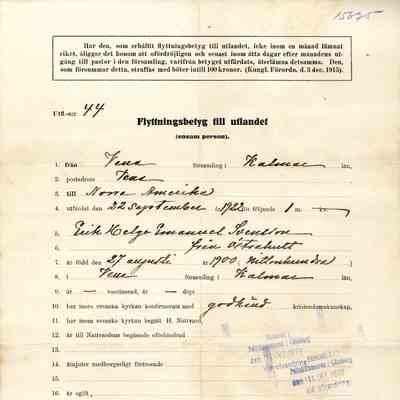 15635
Har den, som erhållit flyttningsbetyg till utlandet, icke inom en månad lämnat
riket, åligger det honom att ofördröjligen och senast inom åtta dagar efter månadens ut-
gång till pastor i den församling, varifrån betyget utfärdats, återlämna detsamma. Den,
som försummar detta, straffas med böter intill 100 kronor. (Kungl. Förordn. d. 3 dec. 1915).
Utfl.-n:r 44
Flyttningsbetyg till utlandet
(ensam person).
1. från Vena församling i Kalmar län,
2. postadress Vena
3. till Norra Amerika
4. utfärdat den 22 September år 1922 för följande 1 m.
5. Erik Helge Emanuel Svensson
6. från
7. är född den 27 augusti år 1900, Nittonhundra
8. i Vena församling i Kalmar län,
9. är — vaccinerad, är — döpt
10. har inom svenska kyrkan konfirmerats med godkänd kristendomskunskap,
11. har inom svenska kyrkan begått H. Nattvard,
12. är till Nattvardens begående oförhindrad
13.
14. åtnjuter medborgerligt förtroende
15.
16. är ogift,